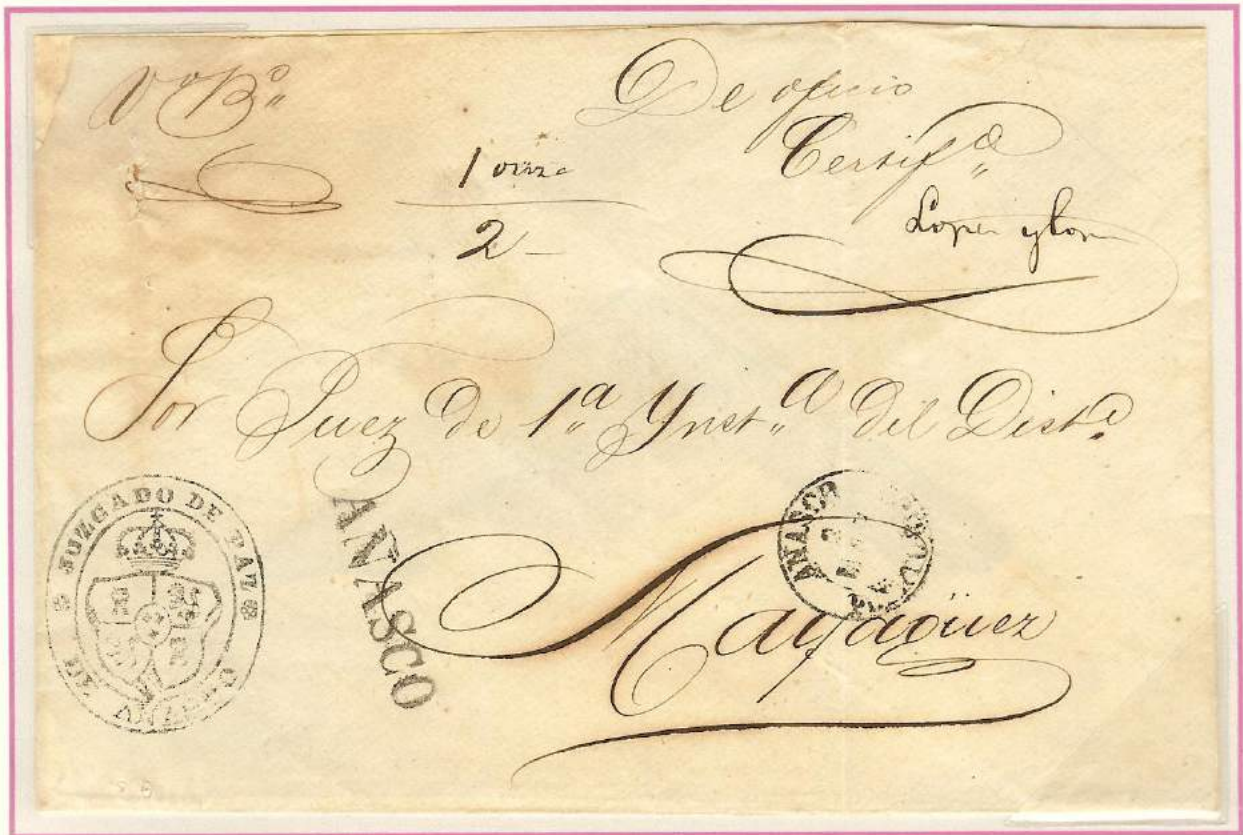 VºBº
De oficio
Certifdo
1 onza
2
Lopez y Lopez
Sor Juez de 1ª Ynstª del Distº
JUZGADO DE PAZ
DE AÑASCO
AÑASCO
AÑASCO
Mayagüez